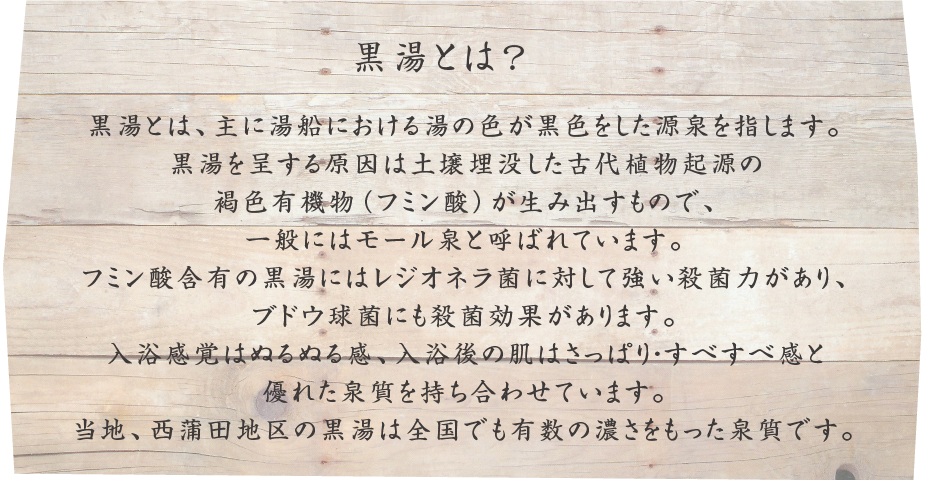 黒湯とは？
黒湯とは、主に湯船における湯の色が黒色をした源泉を指します。
黒湯を呈する原因は土壌埋没した古代植物起源の
褐色有機物（フミン酸）が生み出すもので、
一般にはモール泉と呼ばれています。
フミン酸含有の黒湯にはレジオネラ菌に対して強い殺菌力があり、
ブドウ球菌にも殺菌効果があります。
入浴感覚はぬるぬる感、入浴後の肌はさっぱり・すべすべ感と
優れた泉質を持ち合わせています。
当地、西蒲田地区の黒湯は全国でも有数の濃さをもった泉質です。